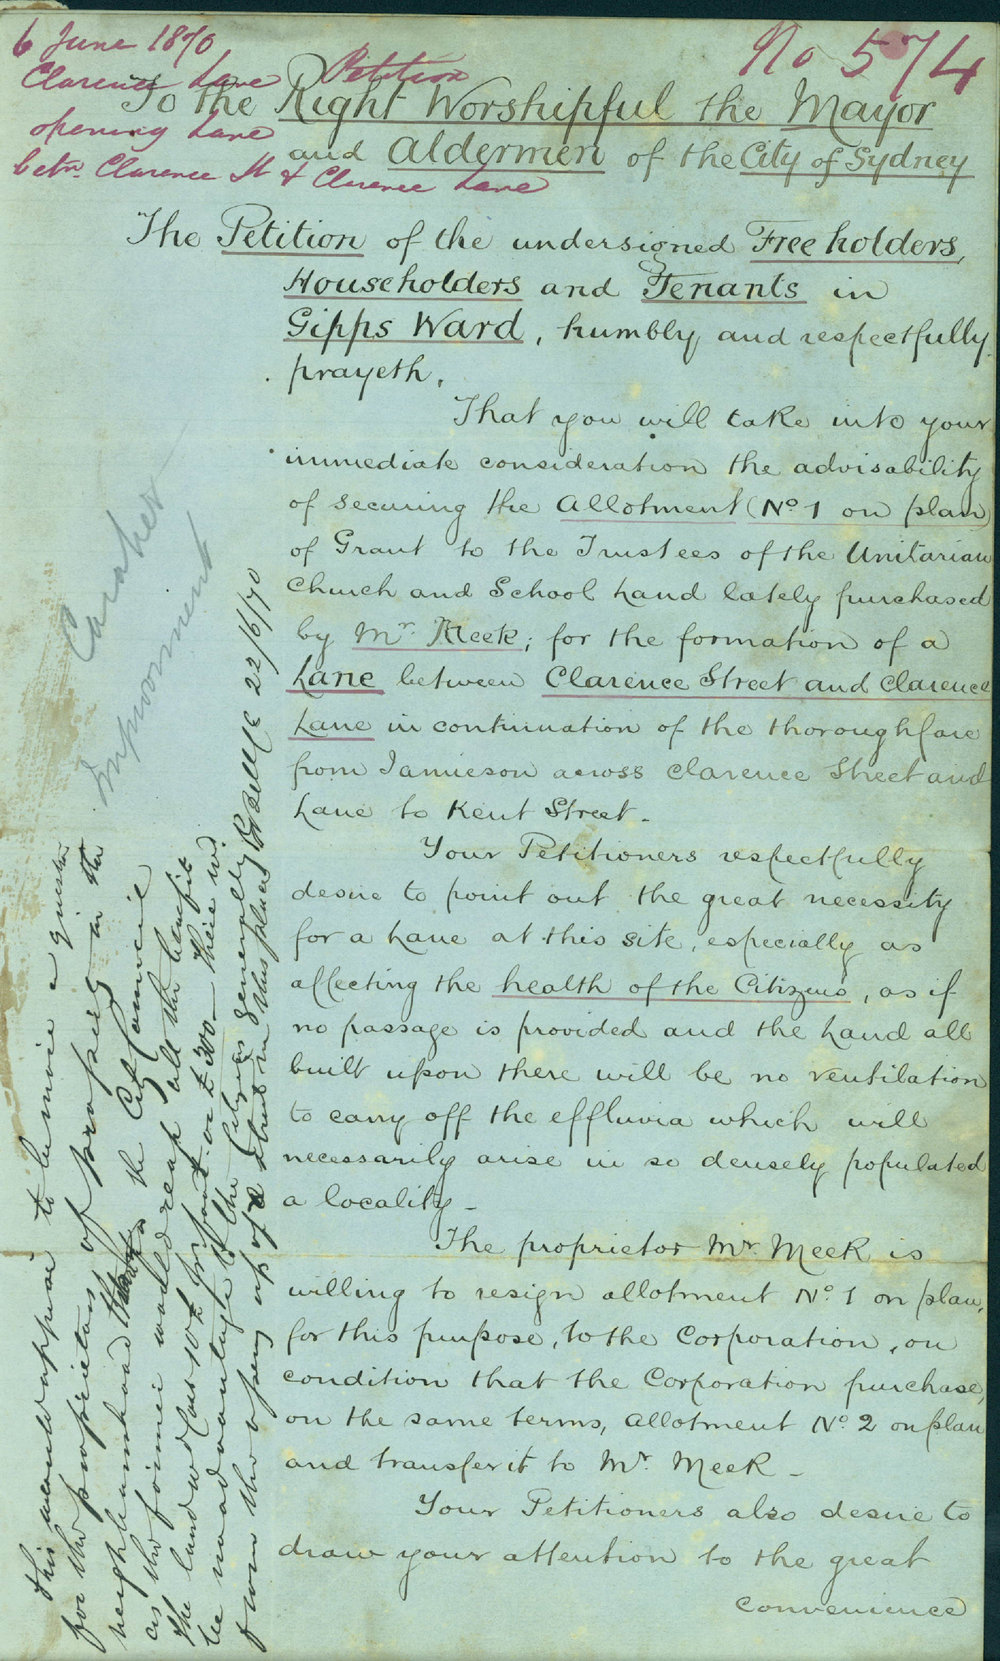 6 June 1870
Petition
No 574
Clarence Lane
opening Lane
betn. Clarence St & Clarence Lane
To the Right Worshipful the Mayor
and Aldermen of the City of Sydney
The Petition of the undersigned Freeholders,
Householders and Tenants in
Gipps Ward, humbly and respectfully
prayeth,
That you will take into your
immediate consideration the advisability
of securing the Allotment (No. 1 on plan)
of Grant to the Trustees of the Unitarian
Church and School Land lately purchased
by Mr. Meek; for the formation of a
Lane between Clarence Street and Clarence
Lane in continuation of the thoroughfare
from Jamieson across Clarence Street and
Lane to Kent Street.
Your Petitioners respectfully
desire to point out the great necessity
for a Lane at this site, especially as
affecting the health of the Citizens, as if
no passage is provided and the Land all
built upon there will be no ventilation
to carry off the effluvia which will
necessarily arise in so densely populated
a locality.
The proprietor Mr. Meek is
willing to resign allotment No. 1 on plan,
for this purpose, to the Corporation, on
condition that the Corporation purchase,
on the same terms, Allotment No. 2 on plan
and transfer it to Mr. Meek.
Your Petitioners also desire to
draw your attention to the great
convenience
Improvement
This would appear to be more a question
for the proprietors of property in the
neighbourhood than the City Council
as the former would reap all the benefit
the land would cost 10£ pr foot or £300 – there wd
be no advantage to the City generally
from the opening up of a street in this place
22/6/70